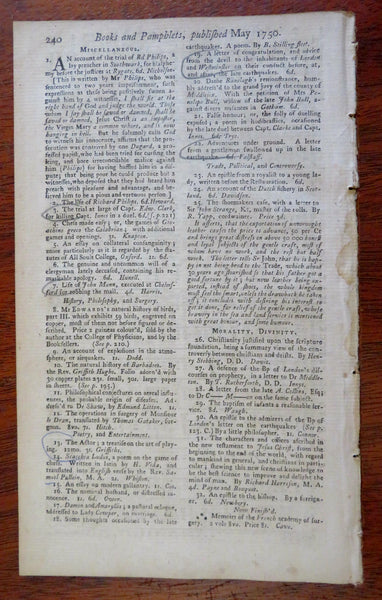 240 Books and Pamphlets, published May 1750.
MISCELLANEOUS.
1. AN account of the trial of Rd Philips, a
lay preacher in Southwark, for blasphe-
my before the justices at Rygate. 6d. Nicholson.
(This is written by Mr Philips, who was
sentenced to two years imprisonment, such
expressions as these being positively sworn a-
gainst him by 4 witnesses, I shall sit at the
right hand of God and judge the world. Those
whom I say shall be saved or damned, shall be
saved or damned, Jesus Christ is an impostor,
the Virgin Mary a and is now
hanging in hell. But he solemnly calls God
to witness his innocence, affirms that the prose-
cution was contrived by one Dugard, a pro-
fessed papist, who had been tried for cursing the
king, and bore irreconcileable malice against
him (Philips) for having baffled him in a dis-
pute; that being poor he could produce but 2
witnesses, who deposed that they heard him
preach with pleasure and advantage, and be-
lieved him to be a pious and virtuous person.)
2. The life of Richard Philips. 6d. Howard.
3. The trial at large of Capt. Edw. Clark,
for killing Capt. Innes in a duel. 6d. (p. 221)
4. Chess made easy; or, the games of Gre-
chino greco the Calabrian; with additional
games and openings. Knapton.
5. An essay on collateral consanguinity:
more particularly as it is regarded by the sta-
tutes of All Souls College, Oxford. 1s.
6. The genuine and uncommon will of a
clergyman lately deceased, containing his re-
markable apology. 6d. Howell.
7. Life of John Munn, executed at Chelms-
ford for robbing the mail. 4d. Harris.
History, Philosophy, and Surgery.
8. Mr EDWARDS's natural history of birds,
part III. which exhibits 59 birds, engraved on
copper, most of them not before figured or de-
scribed. Price 2 guineas coloured, sold by the
author at the College of Physicians, and by the
Booksellers. (See p. 210.)
9. An account of explosions in the atmo-
sphere, or airquakes. 1s. Dodd.
10. The natural history of Barbadoes. By
the Rev. Griffith Hughes. Folio adorn'd with
30 copper plates 25s. small, 50s. large paper
in sheets. (See p. 195.)
11. Philosophical conjectures on aereal influ-
ences, the probable origin of diseases. Ad-
dress'd to Dr Shaw, by Edmund Litton. 1s.
12. The operations in surgery of Monsieur
le Dran, translated by Thomas Gataker, sur-
geon. 8vo. 7s. Hitch.
Poetry, and Entertainment.
13. The Actor; a treatise on the art of play-
ing. 12mo. 3s. Griffiths.
14. Scacchia Ludus, a poem on the game of
chess. Written in latin by H. Vida, and
translated into English verse by the Rev. Sa-
muel Pullein, M. A. 2s. Whiston.
15. An essay on modern gallantry. 1s. Cooper.
16. The natural husband, or distressed in-
nocence. 1s. 6d. Owen.
17. Damon and Amaryllis; a pastoral eclogue,
addressed to Lady Cowper, on marriage. 6d.
18. Some thoughts occasioned by the late
earthquakes. A poem. By B. Stillingfleet.
19. A letter of congratulation, and advice
from the devil to the inhabitants of London
and Westminster on their conduct before, at,
and after, the late earthquakes. 6d.
20. Dame Rawleigh's remonstrance, hum-
bly address'd to the grand jury of the county of
Middlesex. With the petition of Mrs Pe-
nelope Bull, widow of the late John Bull, a-
gainst divers nuisances in Gotham. 6d.
21. False honour, or, the folly of duelling
exposed; a poem in hudibrastics, occasioned
by the late duel between Capt. Clarke and Capt.
Innes. 6d. Tye.
22. Adventures under ground. A letter
from a gentleman swallowed up in the late
earthquake. 6d. Falstaff.
Trade, Political, and Controversy.
23. An epistle from a royalist to a young la-
dy, written before the Restoration. 6d.
24. An account of the Dutch fishery in Scot-
land. 6d. Davidson.
25. The shoemakers case, with a letter to
Sir John Strange, Kt, master of the rolls. By
R. Yapp, cordwainer. Price 3d.
It asserts, that the exportation of unwrought
leather causes the price to advance, 50 per Ct
and brings great distress on above 20 000 honest
and loyal subjects of the gentle craft, most of
whom have no work, and the rest but half
work. The letter tells Sr John, that he is hap-
py in not being bred to the Trade, which about
30 years ago flourished so that his father got a
good fortune by it; had now leather been ex-
ported, instead of shoes, the whole kingdom
must feel the smart, unless the drawback be taken
off; it concludes with desiring his interest, to
get it done, for relief of the gentle craft, whose
favour is a concern for government, is written
with great ease, and some humour.
MORALITY, DIVINITY.
26. Christianity justified upon the scripture
foundation, being a summary view of the con-
troversy between christians and deists. By Hen-
ry Stebbing, D. D. Davis.
27. A defence of the Bp of London's dis-
course on prophecy, in a letter to Dr Middle-
ton. By T. Rutherforth, D. D. Innys.
28. A letter from the late A. Collins, Esq;
to Dr C— M— on the same subject.
29. The baptism of infants a reasonable ser-
vice. 8d. Waugh.
30. An epistle to the admirers of the Bp of
London's letter on the earthquakes (See p.
125. C.) By a little philosopher. 1s. Cooper.
31. The characters and offices ascribed in
the new testament to Jesus Christ, from the
beginning to the end of the world, with regard
to mankind in general, and christians in parti-
cular; shewing this new scene of knowledge to
be the best science to improve and delight the
mind of man. By Richard Harrison, M. A.
4d. Payne and Bouquet.
32. An epistle to the bishop. By a foreign-
er. 6d. Newbery.
Now Finish'd.
*** Memoirs of the French academy of sur-
gery. 2 vols 8vo. Price 8s. Cave.